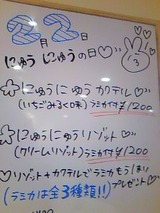 2月2日
にゅうにゅうの日♡
☆にゅうにゅうカクテル♡
(いちごみるく味) ラミカ付¥1200
☆にゅうにゅうリゾット♡
(クリームリゾット) ラミカ付¥1200
♡リゾット+カクテルでラミカもう1まい
プレゼント♡
(ラミカは全3種類!!)